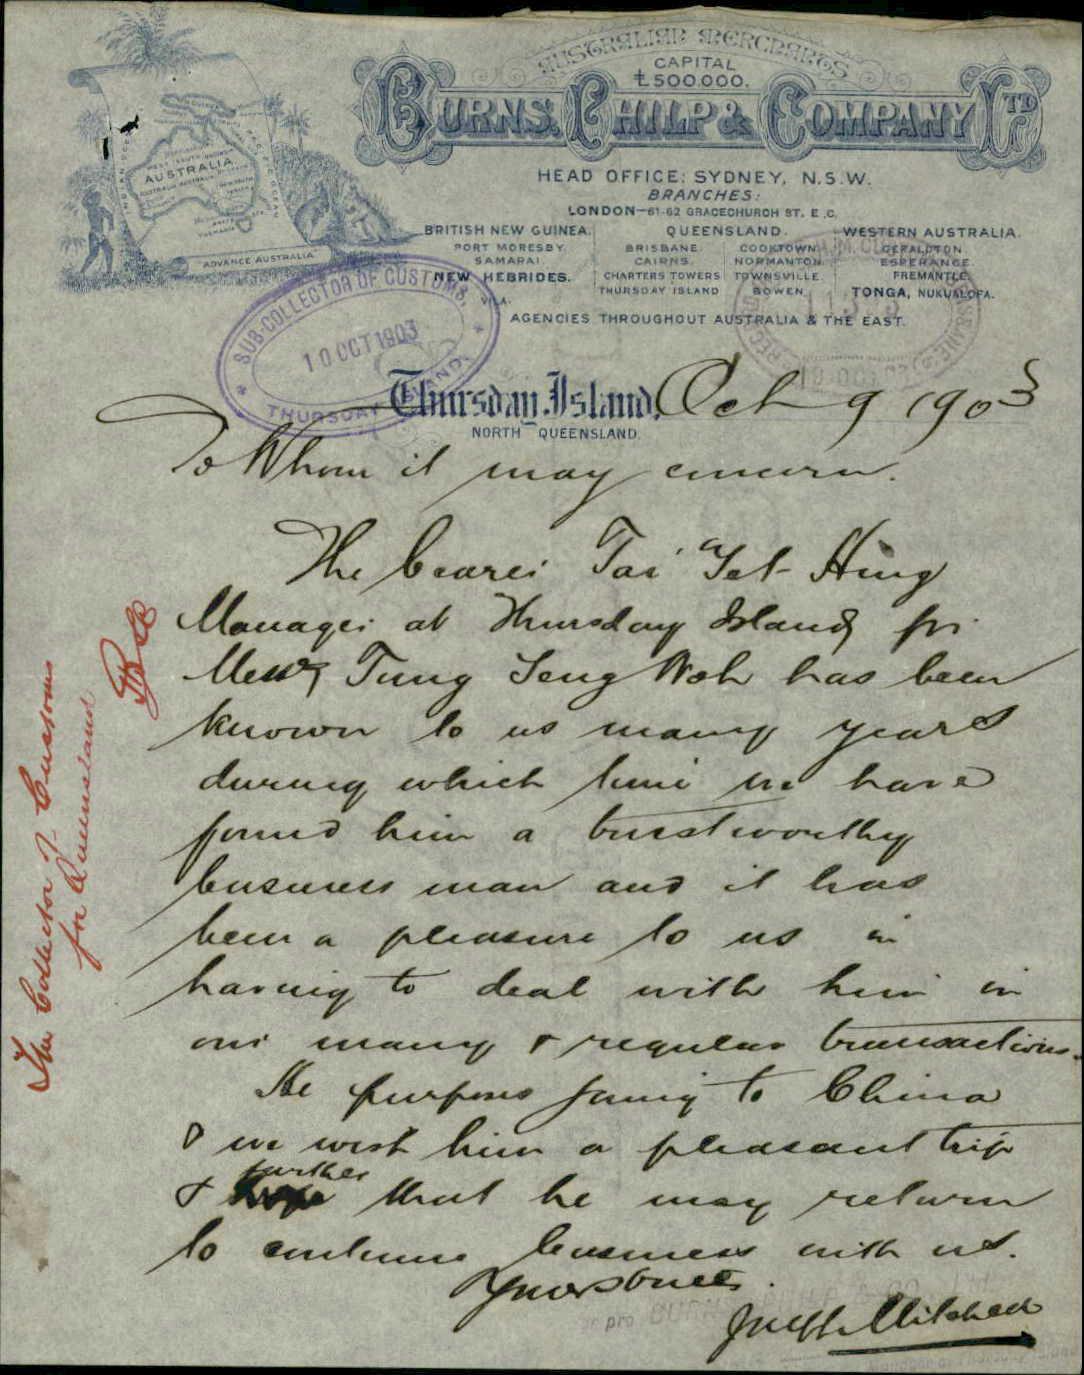 AUSTRALIAN MERCHANTS
CAPITAL
£500,000.
BURNS, PHILP & COMPANY LTD
AUSTRALIA
ADVANCE AUSTRALIA
HEAD OFFICE: SYDNEY, N.S.W.
BRANCHES:
LONDON—61-62 GRACECHURCH ST. E.C.
BRITISH NEW GUINEA.
PORT MORESBY.
SAMARAI.
NEW HEBRIDES.
VILA.
QUEENSLAND.
BRISBANE. COOKTOWN.
CAIRNS. NORMANTON.
CHARTERS TOWERS TOWNSVILLE.
THURSDAY ISLAND BOWEN.
WESTERN AUSTRALIA.
GERALDTON.
ESPERANCE.
FREMANTLE.
TONGA, NUKUALOFA.
AGENCIES THROUGHOUT AUSTRALIA & THE EAST.
SUB-COLLECTOR OF CUSTOMS,
10 OCT 1903
THURSDAY ISLAND.
Thursday Island, Oct 9 1903
NORTH QUEENSLAND.
To Whom it may concern.
The bearer Tai Yet Hing
Manager at Thursday Island for
Messrs Tung Seng Woh has been
known to us many years
during which time we have
found him a trustworthy
business man and it has
been a pleasure to us in
having to deal with him in
our many & regular transactions.
He purposes going to China
& we wish him a pleasant trip
& further that he may return
to continue business with us.
Yours truly.
pro BURNS
Mitchell
The Collector of Customs
for Queensland